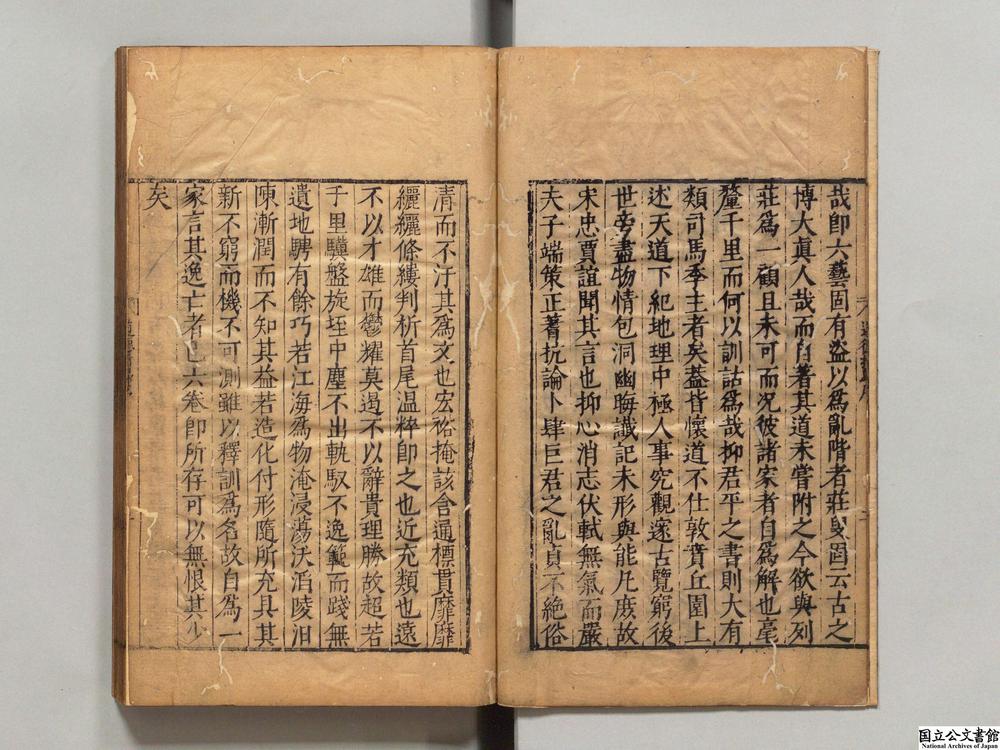 哉卽六藝固有盜以爲亂階者莊叟固云古之
博大眞人哉而自著其道未嘗附之今欲與列
莊爲一顧且未可而况彼諸家者自爲解也毫
釐千里而何以訓詁爲哉抑君平之書則大有
類司馬季主者矣葢皆懷道不仕敦賁丘園上
述天道下紀地理中極人事究觀邃古覽窮後
世旁盡物情包洞幽晦識記未形與能凢庶故
宋忠賈誼聞其言也抑心消志伏軾無氣而嚴
夫子端策正蓍抗論卜肆巨君之亂貞不絶俗
清而不汙其爲文也宏裕掩該含通標貫靡靡
纚纚條縷判析首尾温粹卽之也近充類也遠
不以才雄而鬱耀莫遏不以辭貴理勝故超若
千里驥盤旋垤中塵不出軌馭不逸範而踐無
遺地騁有餘巧若江海爲物淹浸蕩沃滔陵汨
陳漸潤而不知其益若造化付形隨所充具其
新不窮而機不可測雖以釋訓爲名故自爲一
家言其逸亡者也六卷卽所存可以無恨其少
矣
国立公文書館
National Archives of Japan